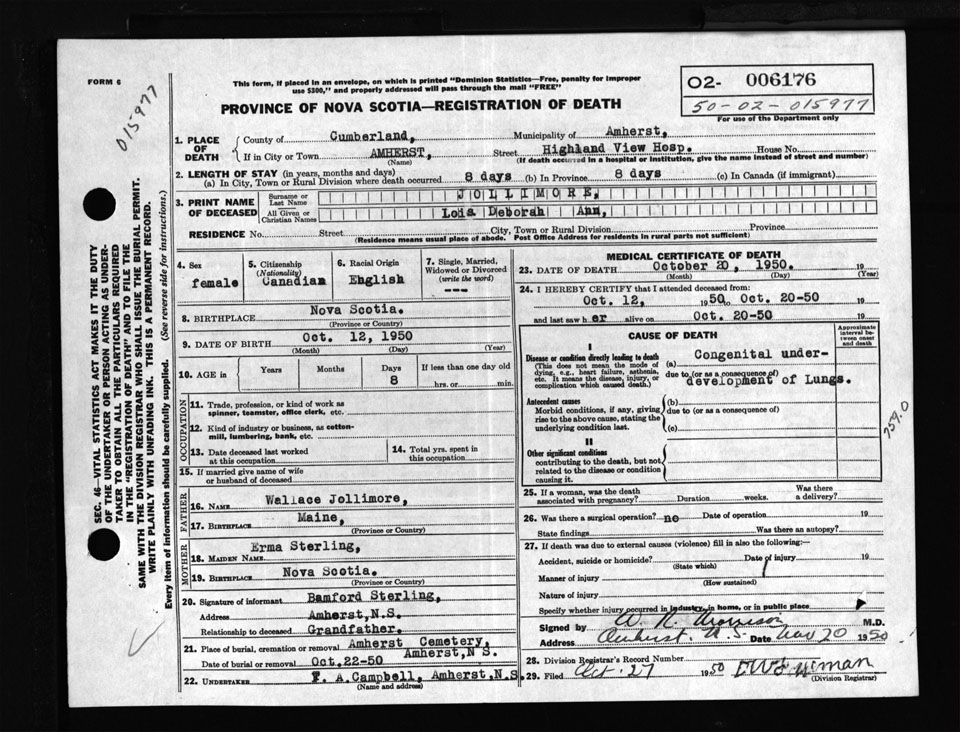 FORM 6
015977
This form, if placed in an envelope, on which is printed "Dominion Statistics—Free, penalty for improper
use $300," and properly addressed will pass through the mail "FREE"
02- 006176
50-02-015977
For use of the Department only
PROVINCE OF NOVA SCOTIA—REGISTRATION OF DEATH
1. PLACE OF DEATH
County of Cumberland, Municipality of Amherst,
If in City or Town AMHERST, Street Highland View Hosp. House No.
(Name) (If death occurred in a hospital or institution, give the name instead of street and number)
2. LENGTH OF STAY (in years, months and days)
(a) In City, Town or Rural Division where death occurred 8 days (b) In Province 8 days (c) In Canada (if immigrant)
3. PRINT NAME OF DECEASED
Surname or Last Name JOLLIMORE,
All Given or Christian Names Lois Deborah Ann,
RESIDENCE No. Street City, Town or Rural Division Province
(Residence means usual place of abode. Post Office Address for residents in rural parts not sufficient)
4. Sex female
5. Citizenship (Nationality) Canadian
6. Racial Origin English
7. Single, Married, Widowed or Divorced (write the word) ---
8. BIRTHPLACE Nova Scotia.
(Province or Country)
9. DATE OF BIRTH Oct. 12, 1950
(Month) (Day) (Year)
10. AGE in Years Months Days 8 If less than one day old hrs. or min.
OCCUPATION
11. Trade, profession, or kind of work as
spinner, teamster, office clerk, etc.
12. Kind of industry or business, as cotton-
mill, lumbering, bank, etc.
13. Date deceased last worked
at this occupation
14. Total yrs. spent in
this occupation
15. If married give name of wife
or husband of deceased
FATHER
16. NAME Wallace Jollimore,
17. BIRTHPLACE Maine,
(Province or Country)
MOTHER
18. MAIDEN NAME Erma Sterling,
19. BIRTHPLACE Nova Scotia.
(Province or Country)
20. Signature of informant Bamford Sterling,
Address Amherst,N.S.
Relationship to deceased Grandfather.
21. Place of burial, cremation or removal Amherst Cemetery,
Amherst,N S.
Date of burial or removal Oct,22-50
22. UNDERTAKER F. A.Campbell, Amherst,N.S.
(Name and address)
MEDICAL CERTIFICATE OF DEATH
23. DATE OF DEATH October 20, 1950. 19
(Month) (Day) (Year)
24. I HEREBY CERTIFY that I attended deceased from:
Oct. 12, 1950 to Oct. 20-50 19
and last saw h er alive on Oct. 20-50 19
CAUSE OF DEATH
Approximate interval between onset and death
I
Disease or condition directly leading to death
(This does not mean the mode of
dying, e.g., heart failure, asthenia,
etc. It means the disease, injury, or
complication which caused death.)
(a) Congenital under-
due to (or as a consequence of)
development of Lungs.
Antecedent causes
Morbid conditions, if any, giving
rise to the above cause, stating the
underlying condition last.
(b)
due to (or as a consequence of)
(c)
759.0
II
Other significant conditions
contributing to the death, but not
related to the disease or condition
causing it.
25. If a woman, was the death
associated with pregnancy? Duration weeks. Was there
a delivery?
26. Was there a surgical operation? no Date of operation 19
State findings Was there an autopsy?
27. If death was due to external causes (violence) fill in also the following:
Accident, suicide or homicide? Date of injury 19
(State which)
Manner of injury
(How sustained)
Nature of injury
Specify whether injury occurred in industry, in home, or in public place
Signed by W. R. Morrison M.D.
Address Amherst. N.S. Date Nov 20 1950
28. Division Registrar's Record Number
29. Filed Oct. 27 1950
(Division Registrar)
SEC. 46—VITAL STATISTICS ACT MAKES IT THE DUTY
OF THE UNDERTAKER OR PERSON ACTING AS UNDER-
TAKER TO OBTAIN ALL THE PARTICULARS REQUIRED
IN THE "REGISTRATION OF DEATH" AND TO FILE THE
SAME WITH THE DIVISION REGISTRAR WHO SHALL ISSUE THE BURIAL PERMIT.
WRITE PLAINLY WITH UNFADING INK. THIS IS A PERMANENT RECORD.
Every item of information should be carefully supplied. (See reverse side for instructions.)